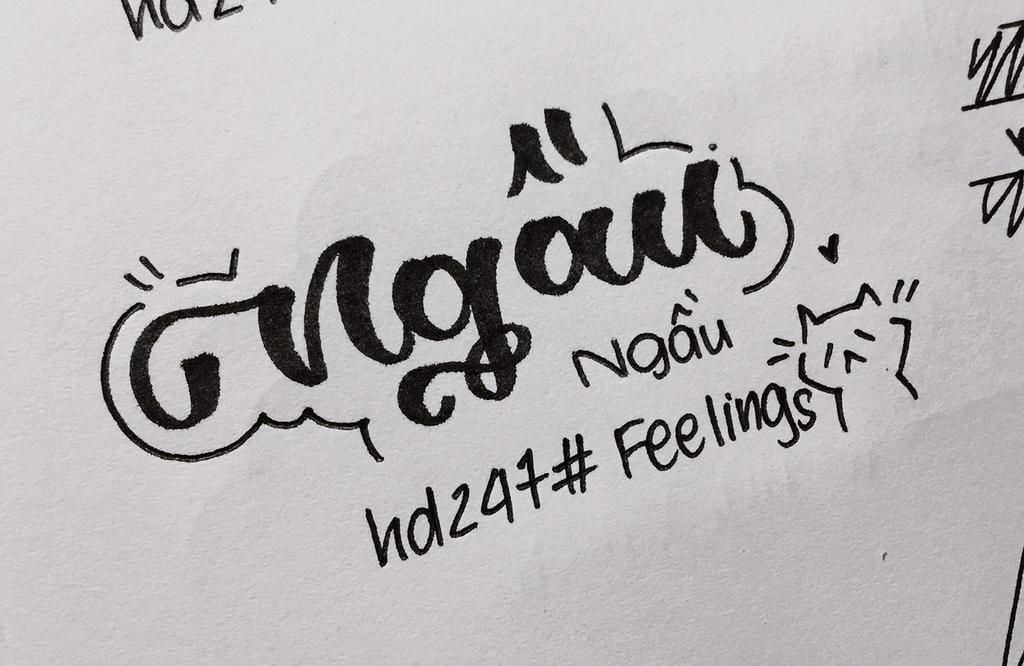 Ngầu
Ngầu
hd247# Feelings